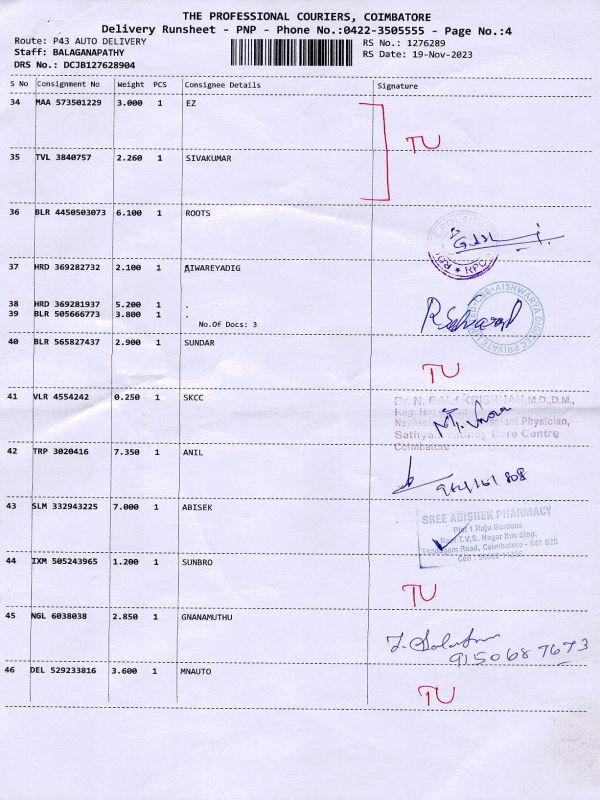 THE PROFESSIONAL COURIERS, COIMBATORE
Delivery Runsheet - PNP - Phone No.:0422-3505555 - Page No.:4
Route: P43 AUTO DELIVERY RS No.: 1276289
Staff: BALAGANAPATHY RS Date: 19-Nov-2023
DRS No.: DCJB127628904
S No Consignment No Weight PCS Consignee Details Signature
34 MAA 573501229 3.000 1 EZ
TU
35 TVL 3840757 2.260 1 SIVAKUMAR
36 BLR 4450503073 6.100 1 ROOTS
37 HRD 369282732 2.100 1 AIWAREYADIG
38 HRD 369281937 5.200 1 .
39 BLR 505666773 3.800 1 .
No.Of Docs: 3
40 BLR 565827437 2.900 1 SUNDAR
TU
41 VLR 4554242 0.250 1 SKCC
Dr. N. BALAKRISHNAN,M.D.,D.M.,
Physician,
Care Centre
Coimbatore
42 TRP 3020416 7.350 1 ANIL
43 SLM 332943225 7.000 1 ABISEK
SREE ABISHEK PHARMACY
Plot 1 Raju Gardens
T.V.S. Nagar Bus Stop,
Road, Coimbatore - 641 025
44 IXM 505243965 1.200 1 SUNBRO
TU
45 NGL 6038038 2.850 1 GNANAMUTHU
9150687673
46 DEL 529233816 3.600 1 MNAUTO
TU